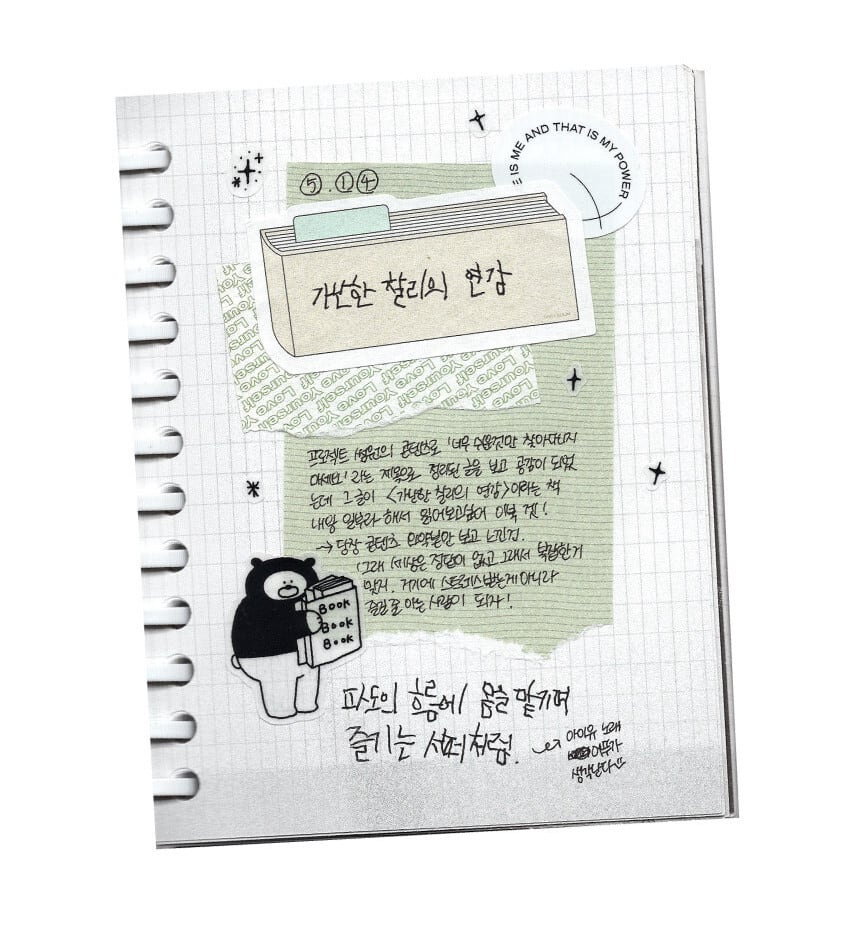 E IS ME AND THAT IS MY POWER
5.14
가난한 찰리의 연감
Love Yourself Love Yourself
프로젝트 썸원의 콘텐츠로 '너무 쉬운것만 찾아다니지
마세요' 라는 제목으로 정리된 글을 보고 공감이 되었
는데 그 글이 <가난한 찰리의 연감>이라는 책
내왕 일부라 해서 읽어보고싶어 이북 겟!
→ 당장 콘텐츠 요약본만 보고 느낀건.
그래 세상은 정답이 없고 그래서 복잡한거
였지. 거기에 스트레스받는게 아니라
즐길 줄 아는 사람이 되자!
BOOK
BOOK
BOOK
파도의 흐름에 몸을 맡기며
즐기는 서퍼처럼.
아이유 노래
어푸가
생각난다